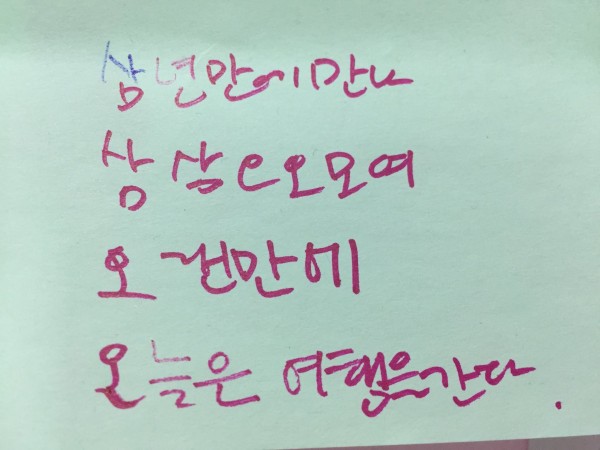 삼년만에만나
삼삼오오모여
오랜만에
오늘은 여행을간다.